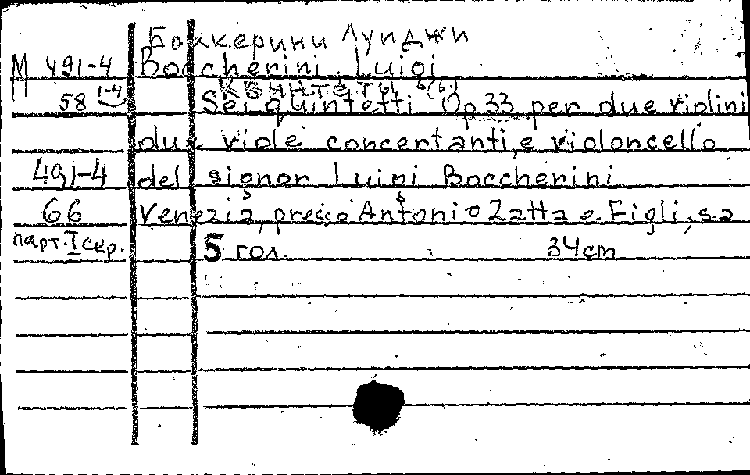 Боккерини Луиджи
М 491-4 Boccherini Luigi
Квинтеты
58 1-4 Sei quintetti Op 33 per due violini
due viole concertanti, e violoncello
491-4 del signor Luigi Boccherini
66 Venezia, presso Antonio Zatta e Figli, s.a
парт. I скр. 5 гол. 34cm